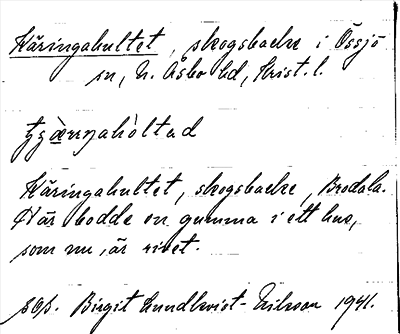 Käringahultet, skogsbacke i Össjö
sn, N. Åsbo hd, Krist. l.
Käringahultet, skogsbacke, Brodala.
Där bodde en gumma i ett hus,
som nu är rivet.
Birgit Lundkvist-Nilsson 1941.